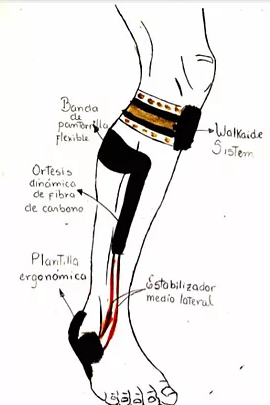 Banda
de
pantorrilla
flexible
Walkaide
Sistem
Ortesis
dinámica
de fibra
de carbono
Plantilla
ergonómica
Estabilizador
medio lateral